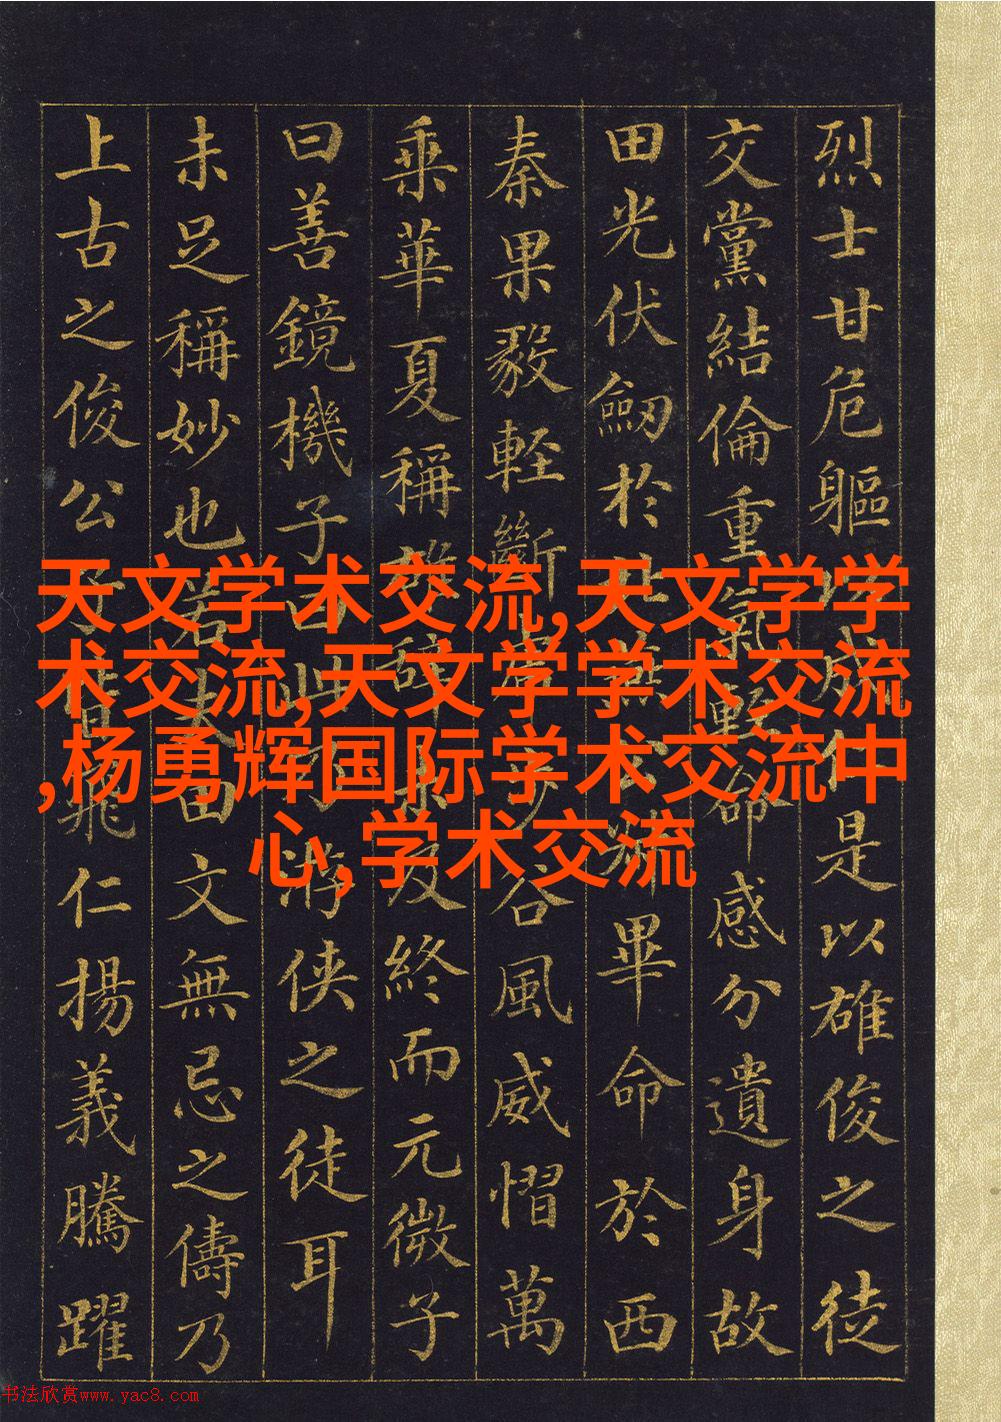 烈士甘危軀以成仁是以雄俊之徒
交黨結倫重氣輕命感分遺身故
田光伏劒於北燕公叔畢命於西
秦果毅輕斷虎步谷風威慴萬
乘華夏稱雄辭未及終而元微子
曰善鏡機子曰此乃游俠之徒耳
未足稱妙也若夫田文無忌之儔乃
上古之俊公子也皆飛仁揚義騰躍
天文学术交流,天文学学
术交流,天文学学术交流
,杨勇辉国际学术交流中
心,学术交流
书法欣赏www.yac8.com